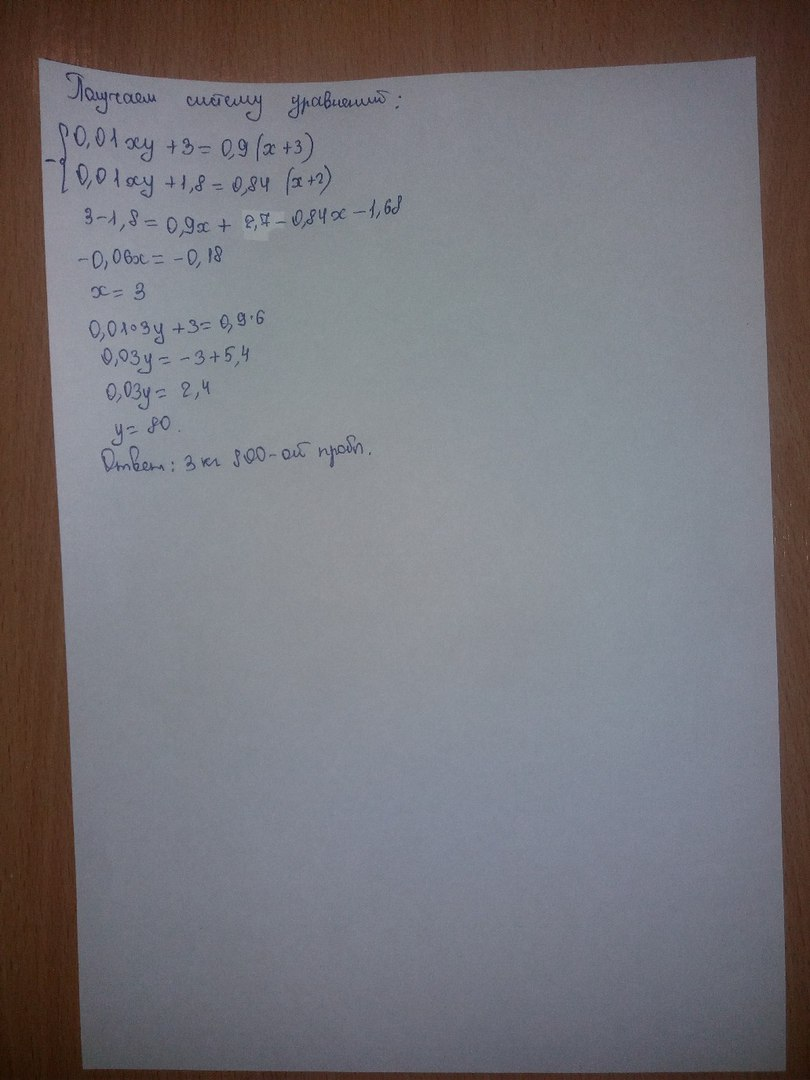 Получаем систему уравнений:
0,01xy + 3 = 0,9 (x + 3)
0,01xy + 1,8 = 0,84 (x+2)
3 - 1,8 = 0,9x + 2,7 - 0,84x - 1,68
-0,06x = -0,18
x = 3
0,01∘3y + 3 = 0,9·6
0,03y = -3 + 5,4
0,03y = 2,4
y = 80.
Ответ: 3 кг 800-ой пробы.